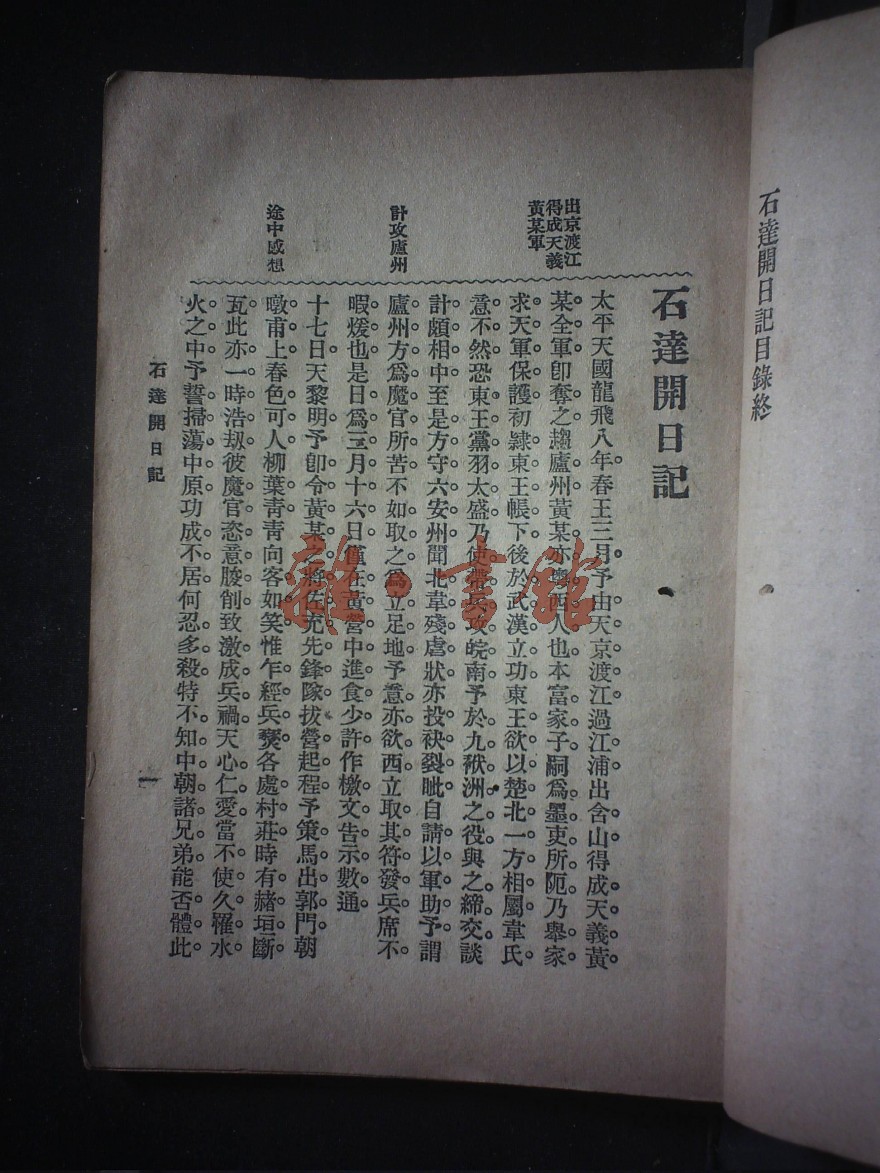 石達開日記目錄終
石達開日記
出京渡江
得成天義
黃某軍
太平天國龍飛八年春王三月予由天京渡江過江浦出含山得成天義黃
某全軍卽奪之趨廬州黃某亦粵西人也本富家子嗣爲墨吏所阨乃舉家
求天軍保護初隸東王帳下後於武漢立功東王欲以楚北一方相屬韋氏
意不然恐東王黨羽太盛乃使帶兵攻皖南予於九洑洲之役與之締交談
計攻廬州
計頗相中至是方守六安州聞北韋殘虐狀亦投袂裂眦自請以軍助予謂
廬州方爲魔官所苦不如取之爲立足地予意亦欲西立取其符發兵席不
暇煖也是日爲三月十六日僅在黃營中進食少許作檄文告示數通
途中感想
十七日天黎明予卽令黃某之將佐充先鋒隊拔營起程予策馬出郭門朝
暾甫上春色可人柳葉靑靑向客如笑惟乍經兵燹各處村莊時有赭垣斷
瓦此亦一時浩刼彼魔官恣意朘削致激成兵禍天心仁愛當不使久罹水
火之中予誓掃蕩中原功成不居何忍多殺特不知中朝諸兄弟能否體此
石達開日記
一
雜·書館